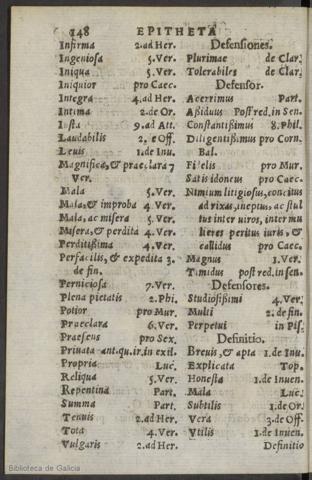 148 EPITHETA
Infirma 2.ad Her.
Ingeniosa 5.Ver.
Iniqua 5.Ver.
Iniquior pro Caec.
Integra 4.ad Her.
Intima 2.de Or.
Iusta 9.ad Att.
Laudabilis 2.e Off.
Leuis 1.de Inu.
Magnifica,& praeclara 7
Ver.
Mala 5.Ver.
Mala,& improba 4 Ver.
Mala, ac misera 5 Ver.
Misera,& perdita 4.Ver.
Perditißima 4.Ver.
Perfacilis, & expedita 3.
de fin.
Perniciosa 7.Ver.
Plena pietatis 2.Phi.
Potior pro Mur.
Praeclara 6.Ver.
Praesens pro Sex.
Priuata ant.qu.ir.in exil.
Propria Luc.
Reliqua 5.Ver.
Repentina Part.
Summa Part.
Tenuis 2.ad Her.
Tota 4.Ver.
Vulgaris 2.ad Her.
Defensiones.
Plurimae de Clar.
Tolerabiles de Clar.
Defensor.
Acerrimus Part.
Aßiduus Post red.in Sen.
Constantißimus 8.Phil.
Diligentißimus pro Corn.
Bal.
Fidelis pro Mur.
Satis idoneus pro Caec.
Nimium litigiosus,concitus
ad rixas,ineptus, ac stul
tus inter uiros, inter mu
lieres peritus iuris, &
callidus pro Caec.
Magnus 1.Ver.
Timidus post red.in sen.
Defensores.
Studiosißimi 4.Ver.
Multi 2.de fin.
Perpetui in Pis.
Definitio.
Breuis,& apta 1.de Inu.
Explicata Top.
Honesta 1.de Inuen.
Mala Luc.
Subtilis 1.de Or.
Vera 3.de Off.
Vtilis 1.de Inuen.
Definitio
Biblioteca de Galicia